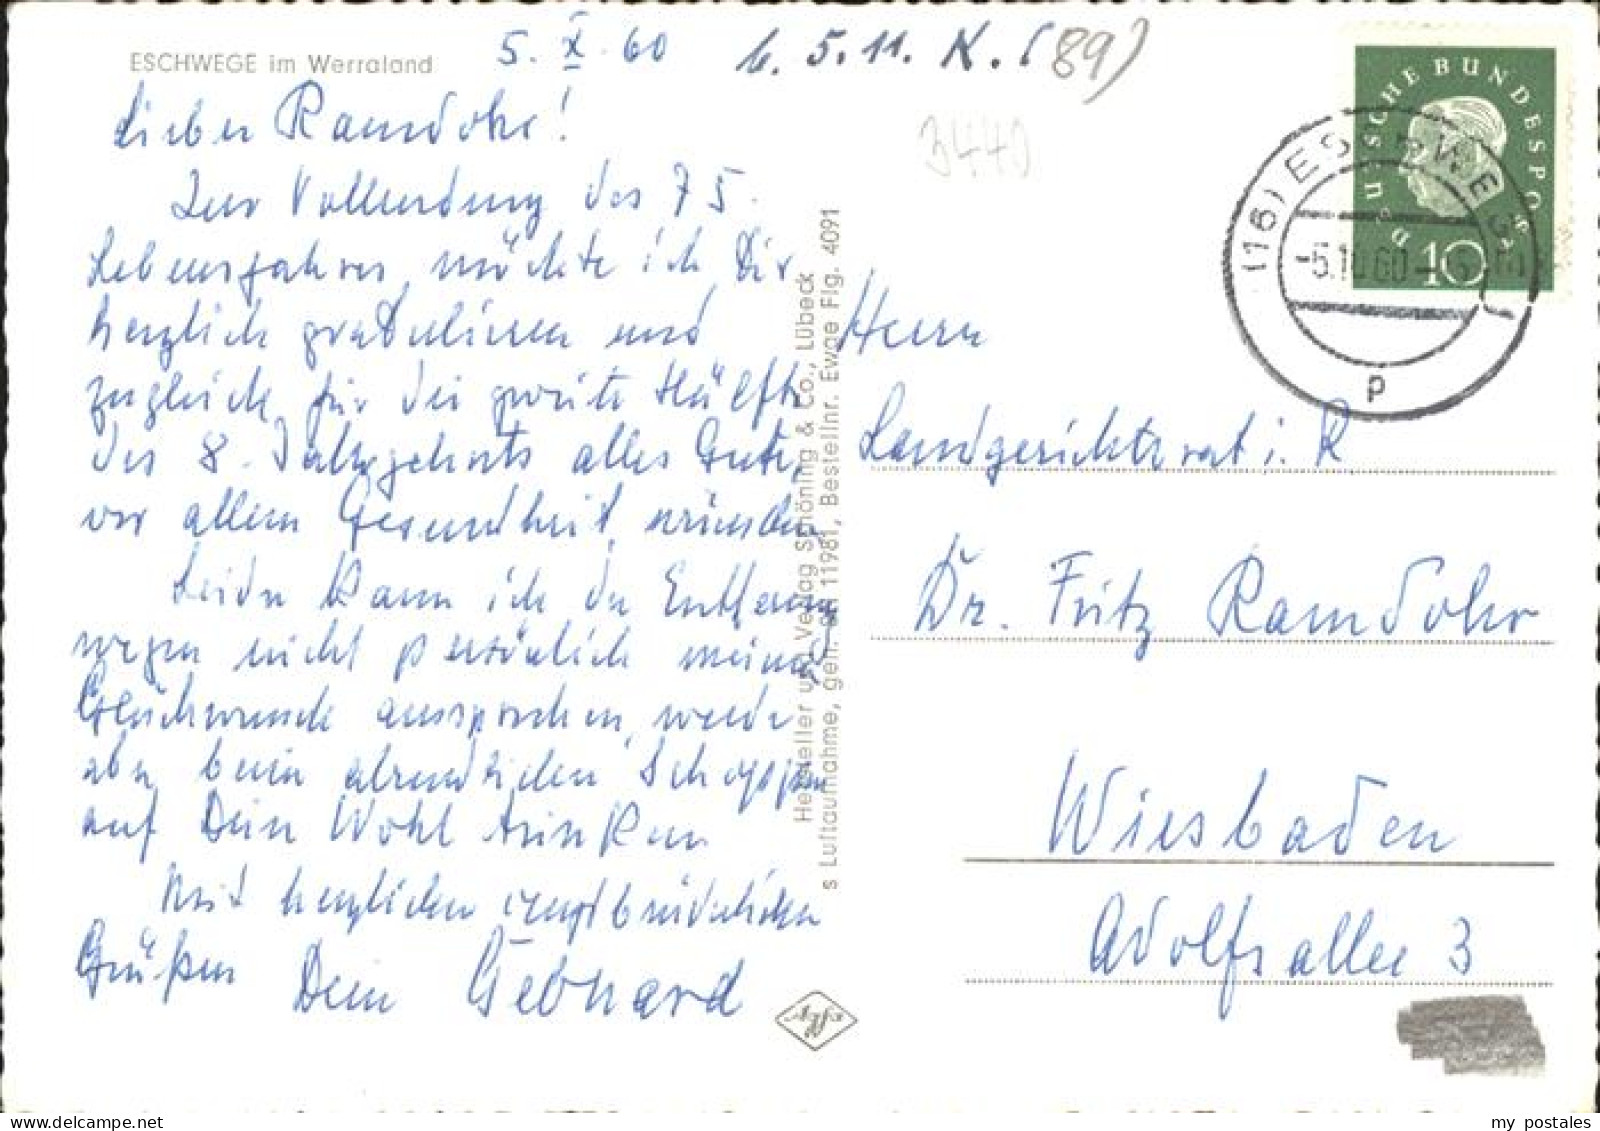 ESCHWEGE im Werraland
5. X. 60
b. 5. 11. K. (89)
3440
Lieber Ramdohr!
Zur Vollendung des 75.
Lebensjahres möchte ich Dir
herzlich gratulieren und
zugleich für die zweite Hälfte
des 8. Jahrzehnts alles Gute,
vor allem Gesundheit, wünschen.
Leider kann ich der Entfernung
wegen nicht persönlich meinen
Glückwunsch aussprechen, werde
aber beim abendlichen Schoppen
auf Dein Wohl trinken
Mit herzlichen
Grüßen Dein Gebhard
Hersteller und Verlag Schöning & Co., Lübeck
s Luftaufnahme, gen. 11981, Bestellnr. Ewge Flg. 4091
Agfa
DEUTSCHE BUNDESPOST
10
(16) ESCHWEGE
-5.10.60-
p
Herrn
Landgerichtsrat i. R
Dr. Fritz Ramdohr
Wiesbaden
Adolfsallee 3
my postales